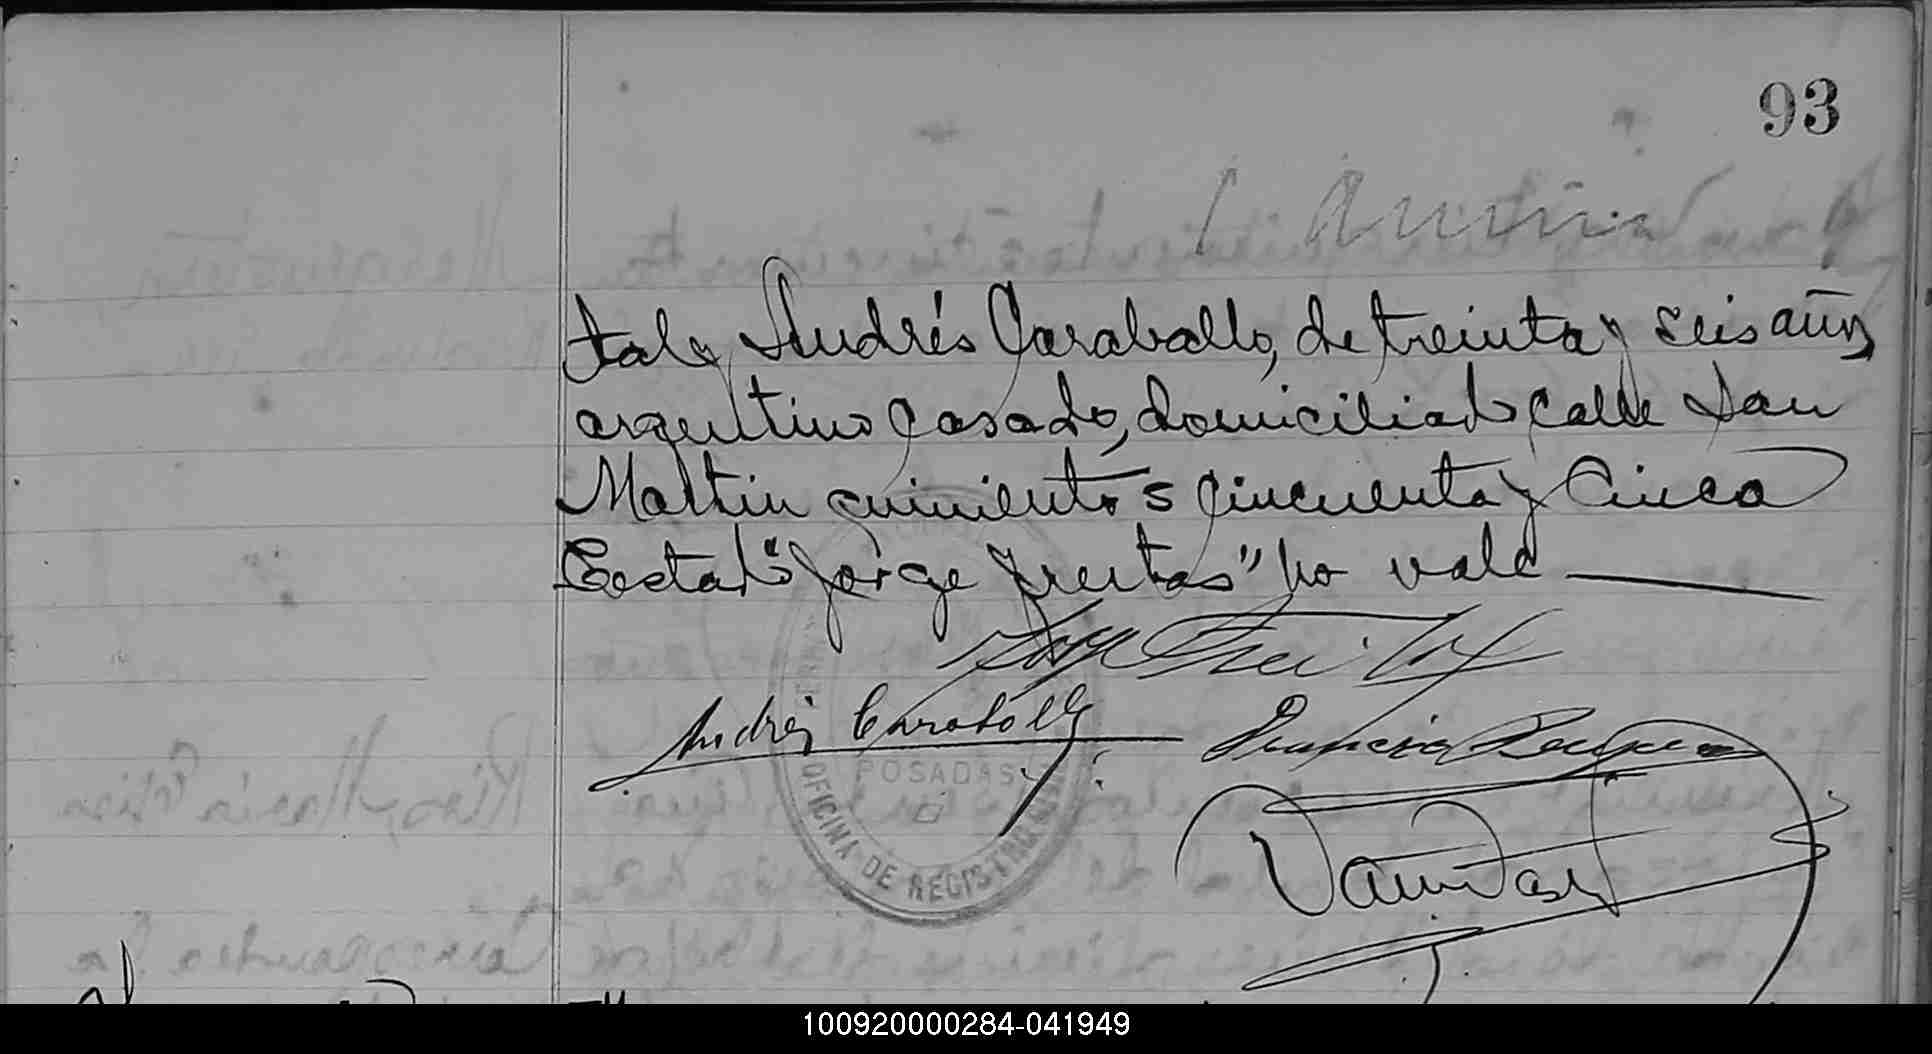 93
tal y Andrés Caraballo, de treinta y seis años
argentino casado, domiciliado calle San
Martin quinientos cincuenta y cinco
Testado "Jorge Freitas" no vale
Jorge Freitas
Andrés Caraballo
Francisco
POSADAS
OFICINA DE REGISTRO
100920000284-041949